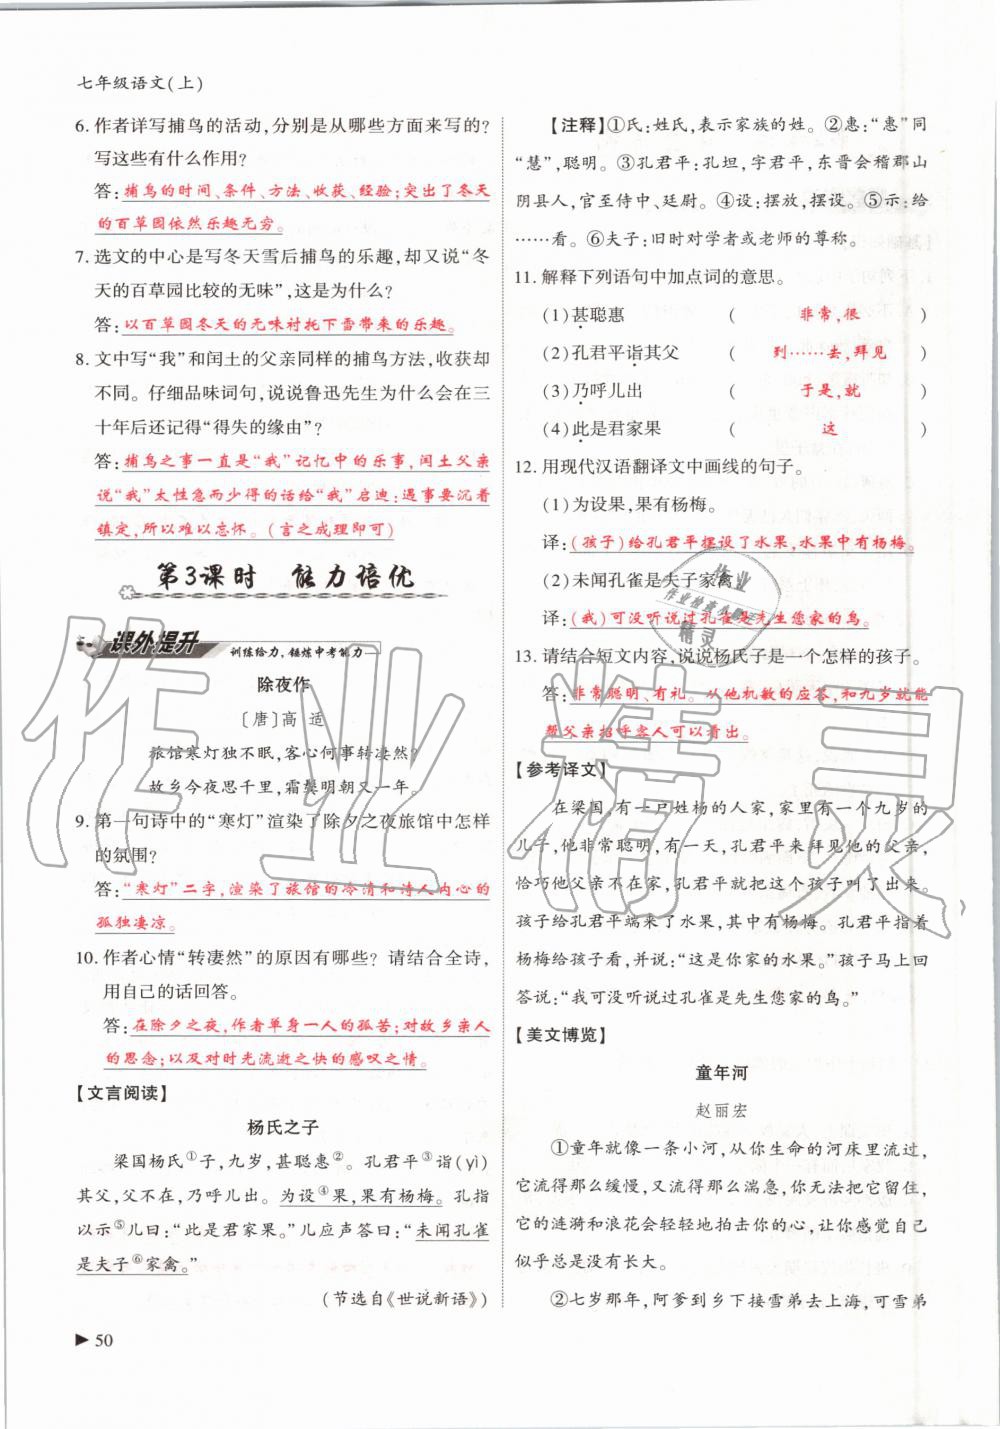 七年级语文(上)
6. 作者详写捕鸟的活动,分别是从哪些方面来写的?
写这些有什么作用?
答:捕鸟的时间、条件、方法、收获、经验;突出了冬天
的百草园依然乐趣无穷。
7. 选文的中心是写冬天雪后捕鸟的乐趣,却又说“冬
天的百草园比较的无味”,这是为什么?
答:以百草园冬天的无味衬托下雪带来的乐趣。
8. 文中写“我”和闰土的父亲同样的捕鸟方法,收获却
不同。仔细品味词句,说说鲁迅先生为什么会在三
十年后还记得“得失的缘由”?
答:捕鸟之事一直是“我”记忆中的乐事,闰土父亲
说“我”太性急而少得的话给“我”启迪:遇事要沉着
镇定,所以难以忘怀。(言之成理即可)
第3课时 能力培优
课外提升 训练给力,锤炼中考能力
除夜作
〔唐〕高 适
旅馆寒灯独不眠,客心何事转凄然?
故乡今夜思千里,霜鬓明朝又一年。
9. 第一句诗中的“寒灯”渲染了除夕之夜旅馆中怎样
的氛围?
答:“寒灯”二字,渲染了旅馆的冷清和诗人内心的
孤独凄凉。
10. 作者心情“转凄然”的原因有哪些?请结合全诗,
用自己的话回答。
答:在除夕之夜,作者单身一人的孤苦;对故乡亲人
的思念;以及对时光流逝之快的感叹之情。
【文言阅读】
杨氏之子
梁国杨氏①子,九岁,甚聪惠②。孔君平③诣(yì)
其父,父不在,乃呼儿出。为设④果,果有杨梅。孔指
以示⑤儿曰:“此是君家果。”儿应声答曰:“未闻孔雀
是夫子⑥家禽。”
(节选自《世说新语》)
▶ 50
【注释】①氏:姓氏,表示家族的姓。②惠:“惠”同
“慧”,聪明。③孔君平:孔坦,字君平,东晋会稽郡山
阴县人,官至侍中、廷尉。④设:摆放,摆设。⑤示:给
……看。⑥夫子:旧时对学者或老师的尊称。
11. 解释下列语句中加点词的意思。
(1)甚聪惠 ( 非常,很 )
(2)孔君平诣其父 ( 到……去,拜见 )
(3)乃呼儿出 ( 于是,就 )
(4)此是君家果 ( 这 )
12. 用现代汉语翻译文中画线的句子。
(1)为设果,果有杨梅。
译:(孩子)给孔君平摆设了水果,水果中有杨梅。
(2)未闻孔雀是夫子家禽。
译:(我)可没听说过孔雀是先生您家的鸟。
13. 请结合短文内容,说说杨氏子是一个怎样的孩子。
答:非常聪明、有礼。从他机敏的应答,和九岁就能
帮父亲招呼客人可以看出。
【参考译文】
在梁国,有一户姓杨的人家,家里有一个九岁的
儿子,他非常聪明,有一天,孔君平来拜见他的父亲,
恰巧他父亲不在家,孔君平就把这个孩子叫了出来。
孩子给孔君平端来了水果,其中有杨梅。孔君平指着
杨梅给孩子看,并说:“这是你家的水果。”孩子马上回
答说:“我可没听说过孔雀是先生您家的鸟。”
【美文博览】
童年河
赵丽宏
①童年就像一条小河,从你生命的河床里流过,
它流得那么缓慢,又流得那么湍急,你无法把它留住,
它的涟漪和浪花会轻轻地拍击你的心,让你感觉自己
似乎总是没有长大。
②七岁那年,阿爹到乡下接雪弟去上海,可雪弟
作业精灵
作业
作业检查小助手
精灵